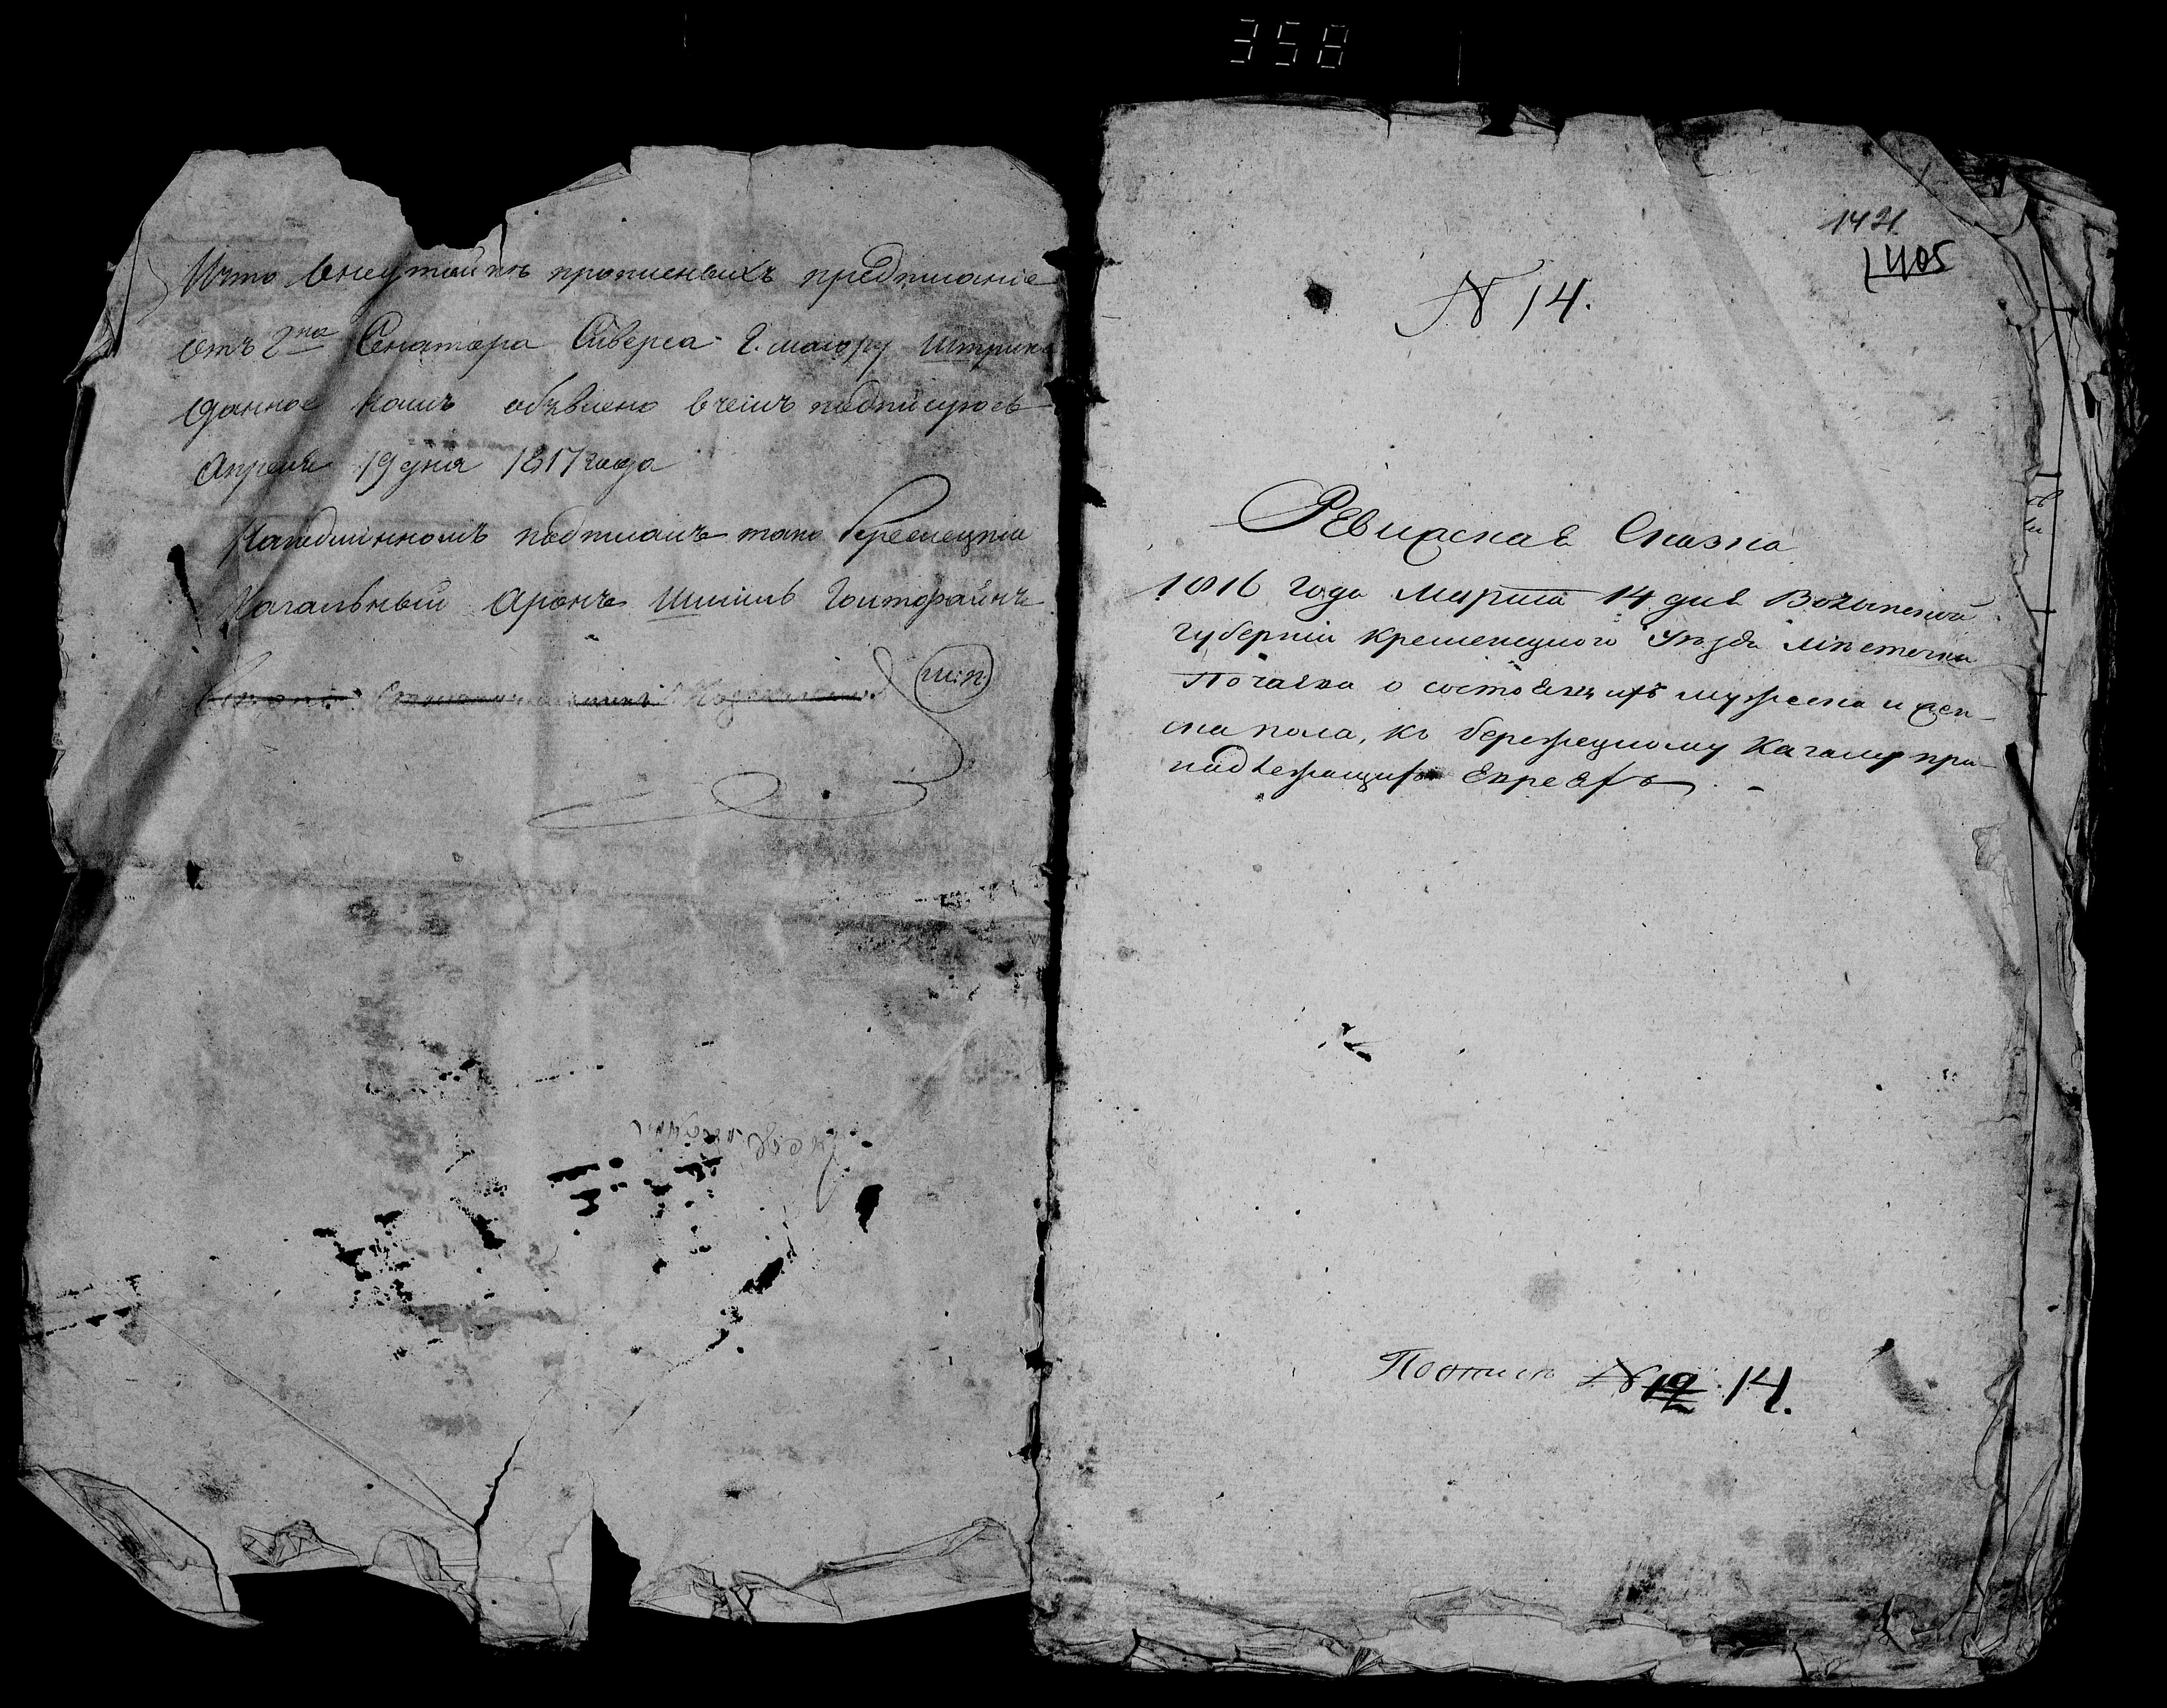 358
что прописныхъ предписание
отъ Гна Сенатора Сиверса Г. маіору
данное намъ объявлено вчемъ подписуюсь
Апреля 19 дня 1817 года
тако Бережецкій
Кагальный Аронъ
м:п:
1421
1405
N 14.
Ревизская Сказка
1816 года Марта 14 дня Волынской
губерніи кременецкого уѣзда мѣстечка
Почаева о состоящихъ мужеска и жен-
ска пола, къ бережецкому Кагалу при-
надлежащихъ Евреяхъ
По описи N 12 14.